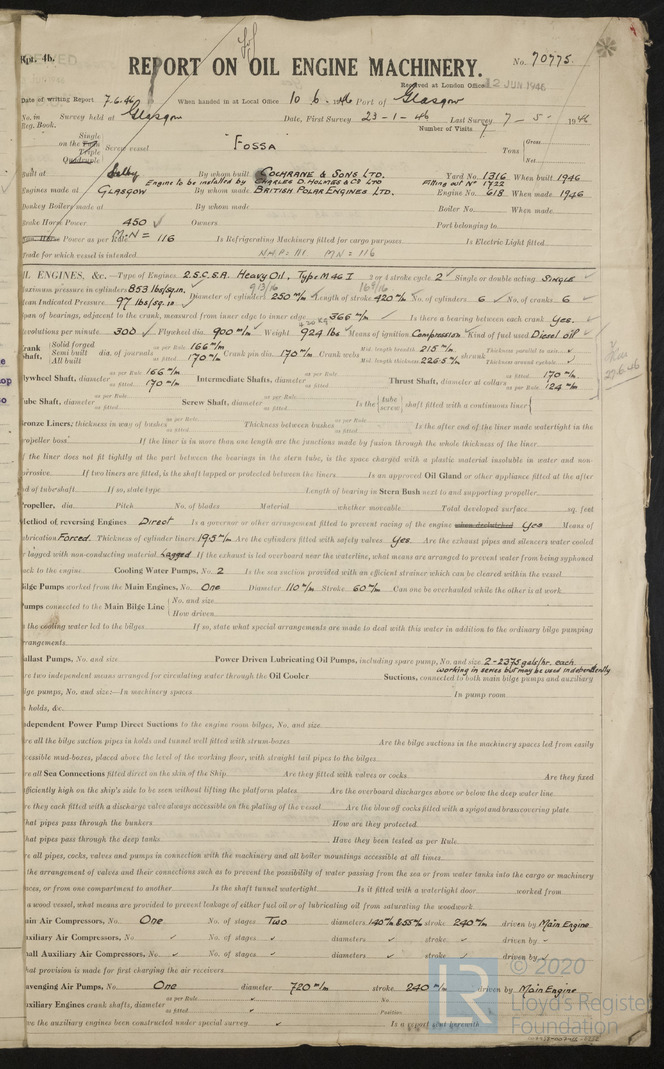 Rpt. 4b.
REPORT ON OIL ENGINE MACHINERY.
No. 70775.
Received at London Office 12 JUN 1946
Date of writing Report 7.6.46 When handed in at Local Office 10 6. 1946 Port of Glasgow
No. in Reg. Book. Survey held at Glasgow Date, First Survey 23-1-46 Last Survey 7-5- 1946
Number of Visits 7
Single
on the Twin
Triple
Quadruple
Screw vessel "FOSSA" Tons Gross Net
Built at Selby By whom built COCHRANE & SONS LTD. Yard No. 1316 When built 1946
Engine to be installed by CHARLES D. HOLMES & CO LTD Fitting out No 1722
Engines made at GLASGOW By whom made BRITISH POLAR ENGINES LTD. Engine No. 618 When made 1946
Donkey Boilers made at By whom made Boiler No. When made
Brake Horse Power 450 Owners Port belonging to
Nom. Horse Power as per Rule M.N = 116 Is Refrigerating Machinery fitted for cargo purposes Is Electric Light fitted
Trade for which vessel is intended MN = 116
OIL ENGINES, &c.—Type of Engines 2.S.C.S.A. Heavy Oil, Type M46I 2 or 4 stroke cycle 2 Single or double acting SINGLE
Maximum pressure in cylinders 853 lbs/sq.in. Diameter of cylinders 250 m/m Length of stroke 420 m/m No. of cylinders 6 No. of cranks 6
Mean Indicated Pressure 97 lbs/sq.in
Span of bearings, adjacent to the crank, measured from inner edge to inner edge 366 m/m Is there a bearing between each crank Yes.
Revolutions per minute 300 Flywheel dia. 900 m/m Weight 924 lbs Means of ignition Compression Kind of fuel used Diesel oil
Crank Shaft, Solid forged Semi built All built dia. of journals as per Rule 166 m/m as fitted 170 m/m Crank pin dia. 170 m/m Crank webs Mid. length breadth 215 m/m Mid. length thickness 226.5 m/m shrunk Thickness parallel to axis Thickness around eyehole
Flywheel Shaft, diameter as per Rule 166 m/m as fitted 170 m/m Intermediate Shafts, diameter as per Rule as fitted Thrust Shaft, diameter at collars as fitted 170 m/m as per Rule 124 m/m
Tube Shaft, diameter as per Rule as fitted Screw Shaft, diameter as per Rule as fitted Is the tube screw shaft fitted with a continuous liner
Bronze Liners, thickness in way of bushes as per Rule as fitted Thickness between bushes as per Rule as fitted Is the after end of the liner made watertight in the
propeller boss If the liner is in more than one length are the junctions made by fusion through the whole thickness of the liner
If the liner does not fit tightly at the part between the bearings in the stern tube, is the space charged with a plastic material insoluble in water and non-
corrosive If two liners are fitted, is the shaft lapped or protected between the liners Is an approved Oil Gland or other appliance fitted at the after
end of tubeshaft If so, state type Length of bearing in Stern Bush next to and supporting propeller
Propeller, dia. Pitch No. of blades Material whether moveable Total developed surface sq. feet
Method of reversing Engines Direct Is a governor or other arrangement fitted to prevent racing of the engine when declutched Yes Means of
lubrication Forced. Thickness of cylinder liners 19.5 m/m Are the cylinders fitted with safety valves Yes Are the exhaust pipes and silencers water cooled
or lagged with non-conducting material Lagged If the exhaust is led overboard near the waterline, what means are arranged to prevent water from being syphoned
back to the engine Cooling Water Pumps, No. 2 Is the sea suction provided with an efficient strainer which can be cleared within the vessel
Bilge Pumps worked from the Main Engines, No. One Diameter 110 m/m Stroke 60 m/m Can one be overhauled while the other is at work
Pumps connected to the Main Bilge Line No. and size How driven
Is the cooling water led to the bilges If so, state what special arrangements are made to deal with this water in addition to the ordinary bilge pumping
arrangements
Ballast Pumps, No. and size Power Driven Lubricating Oil Pumps, including spare pump, No. and size 2-2375 gals/hr. each.
working in series but may be used independently
Are two independent means arranged for circulating water through the Oil Cooler Suctions, connected to both main bilge pumps and auxiliary
bilge pumps, No. and size:—In machinery spaces In pump room
In holds, &c.
Independent Power Pump Direct Suctions to the engine room bilges, No. and size
Are all the bilge suction pipes in holds and tunnel well fitted with strum-boxes Are the bilge suctions in the machinery spaces led from easily
accessible mud-boxes, placed above the level of the working floor, with straight tail pipes to the bilges
Are all Sea Connections fitted direct on the skin of the Ship Are they fitted with valves or cocks Are they fixed
sufficiently high on the ship's side to be seen without lifting the platform plates Are the overboard discharges above or below the deep water line
Are they each fitted with a discharge valve always accessible on the plating of the vessel Are the blow off cocks fitted with a spigot and brass covering plate
What pipes pass through the bunkers How are they protected
What pipes pass through the deep tanks Have they been tested as per Rule
Are all pipes, cocks, valves and pumps in connection with the machinery and all boiler mountings accessible at all times
Is the arrangement of valves and their connections such as to prevent the possibility of water passing from the sea or from water tanks into the cargo or machinery
spaces, or from one compartment to another Is the shaft tunnel watertight Is it fitted with a watertight door worked from
If a wood vessel, what means are provided to prevent leakage of either fuel oil or of lubricating oil from saturating the woodwork
Main Air Compressors, No. One No. of stages Two diameters 140 m/m & 55 m/m stroke 240 m/m driven by Main Engine
Auxiliary Air Compressors, No. No. of stages diameters stroke driven by
Small Auxiliary Air Compressors, No. No. of stages diameters stroke driven by
What provision is made for first charging the air receivers
Scavenging Air Pumps, No. One diameter 720 m/m stroke 240 m/m driven by Main Engine
Auxiliary Engines crank shafts, diameter as per Rule as fitted No. Position
Have the auxiliary engines been constructed under special survey Is a report sent herewith
© 2020
Lloyd's Register
Foundation